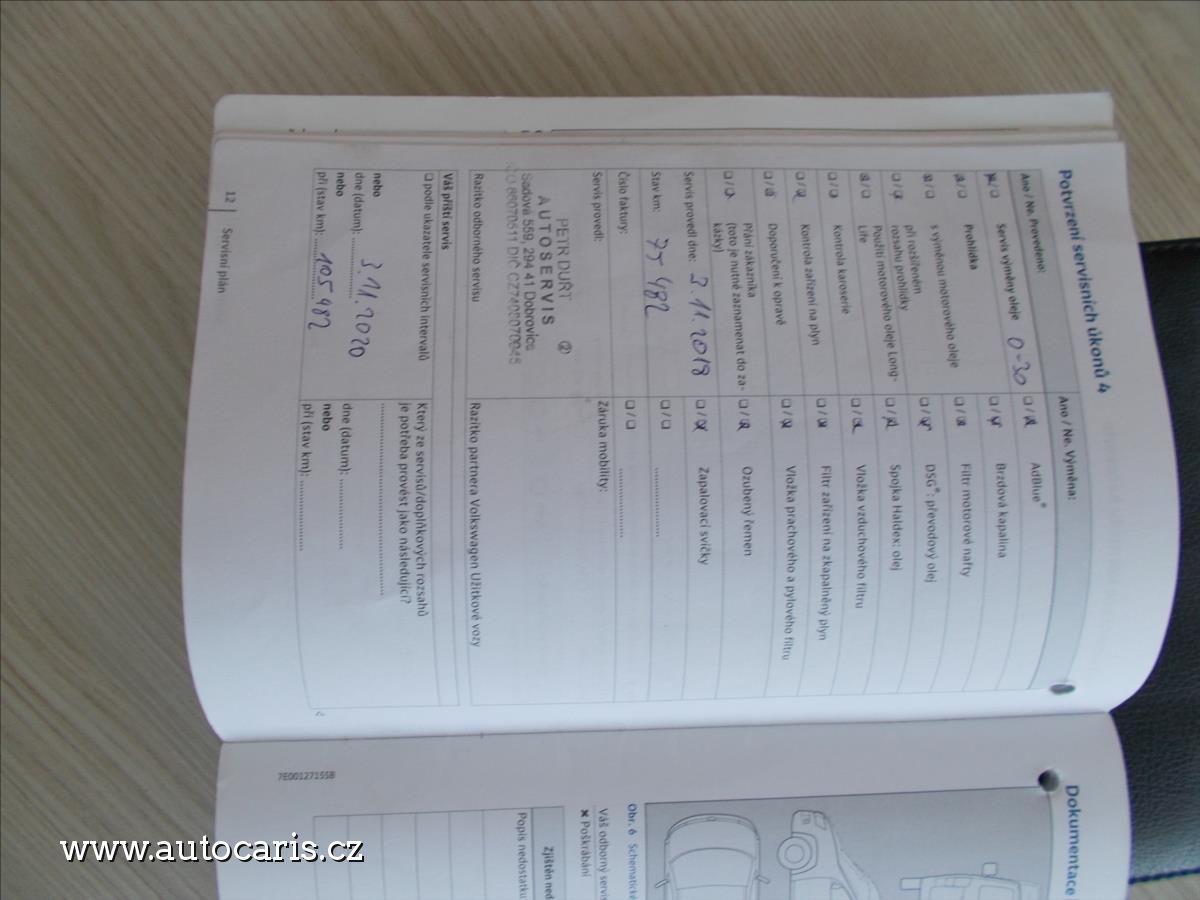 Potvrzení servisních úkonů 4
Ano / Ne. Provedeno:
Servis výměny oleje 0-30
Prohlídka
s výměnou motorového oleje
při rozšířeném
rozsahu prohlídky
Použití motorového oleje Long-
Life
Kontrola karoserie
Kontrola zařízení na plyn
Doporučení k opravě
Přání zákazníka
(toto je nutné zaznamenat do za-
kázky)
Servis provedl dne: 3.11.2018
Stav km: 75 482
Číslo faktury:
Servis provedl:
PETR DUŘT
AUTOSERVIS ②
Sadová 559, 294 41 Dobrovice
Razítko odborného servisu
Ano / Ne. Výměna:
AdBlue®
Brzdová kapalina
Filtr motorové nafty
DSG®: převodový olej
Spojka Haldex: olej
Vložka vzduchového filtru
Filtr zařízení na zkapalněný plyn
Vložka prachového a pylového filtru
Ozubený řemen
Zapalovací svíčky
Záruka mobility:
Razítko partnera Volkswagen Užitkové vozy
Váš příští servis
podle ukazatele servisních intervalů
nebo
dne (datum): 3.11.2020
nebo
při (stav km): 105 982
Který ze servisů/doplňkových rozsahů
je potřeba provést jako následující?
dne (datum):
nebo
při (stav km):
12 Servisní plán
7E0012715SB
Dokumentace
Obr. 6 Schematické
Váš odborný servis
✖ Poškrábání
Zjištěn ned
Popis nedostatku
www.autocaris.cz